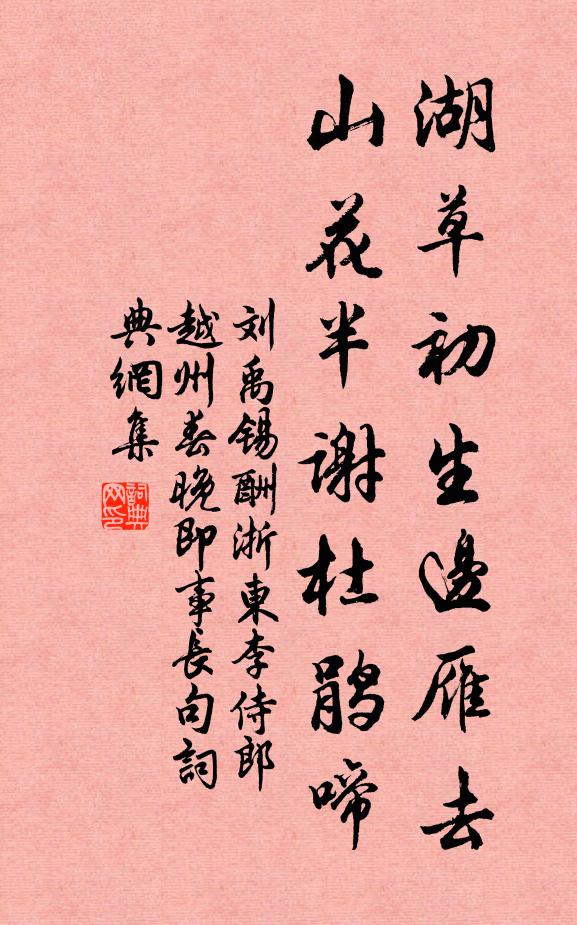 湖草初生邊雁去
山花半謝杜鵑啼
刘禹锡酬浙東李侍郎
越州春晚即事長句詞
典網集
詞典
网印